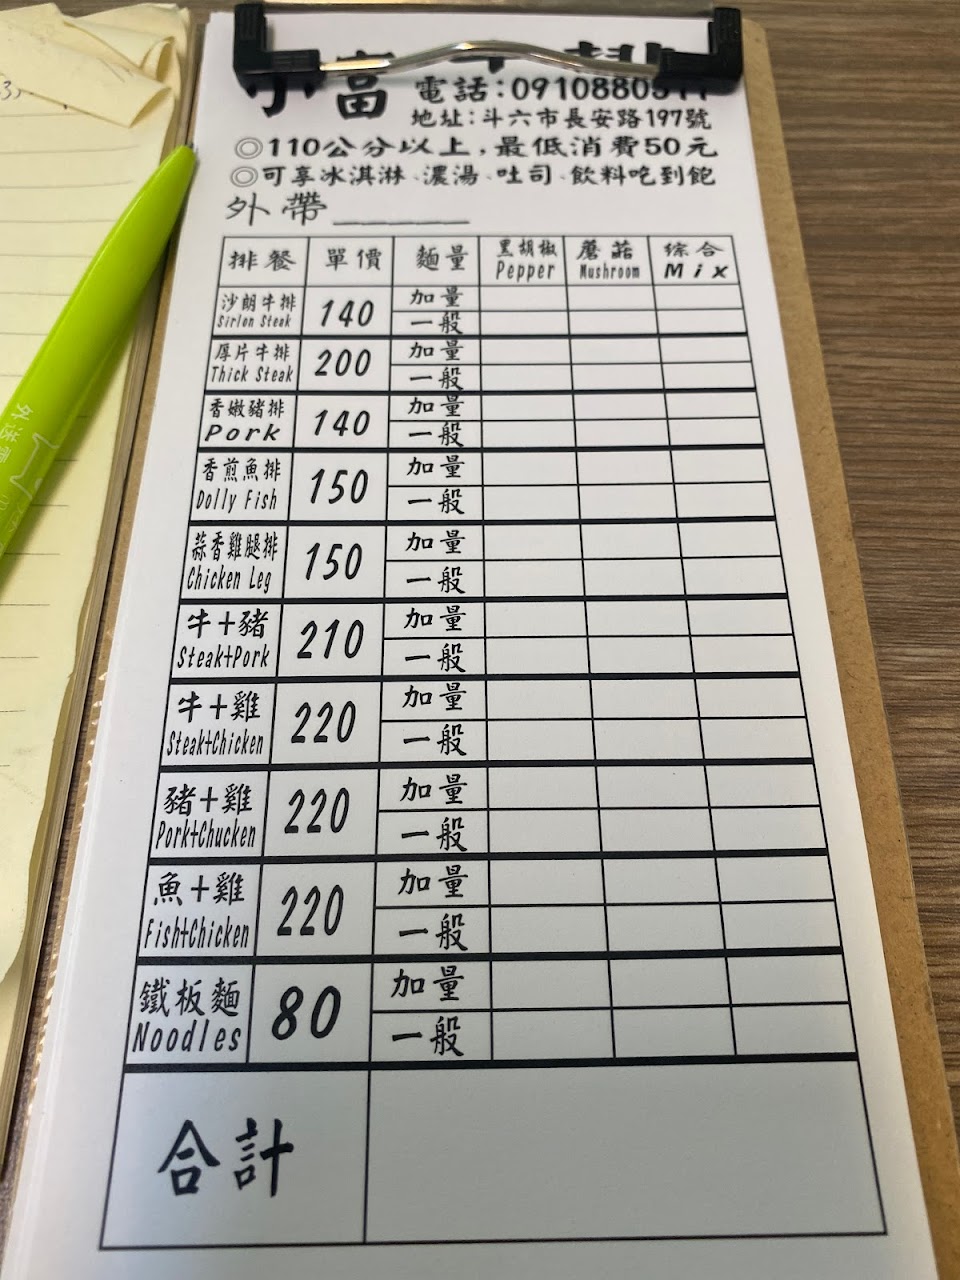 小富
電話:09108805
地址:斗六市長安路197號
◎110公分以上,最低消費50元
◎可享冰淇淋、濃湯、吐司、飲料吃到飽
外帶______
排餐 單價 麵量 黑胡椒 Pepper 蘑菇 Mushroom 綜合 Mix
沙朗牛排 Sirlon Steak 140 加量
一般
厚片牛排 Thick Steak 200 加量
一般
香嫩豬排 Pork 140 加量
一般
香煎魚排 Dolly Fish 150 加量
一般
蒜香雞腿排 Chicken Leg 150 加量
一般
牛+豬 Steak+Pork 210 加量
一般
牛+雞 Steak+Chicken 220 加量
一般
豬+雞 Pork+Chucken 220 加量
一般
魚+雞 Fish+Chicken 220 加量
一般
鐵板麵 Noodles 80 加量
一般
合計
外送電